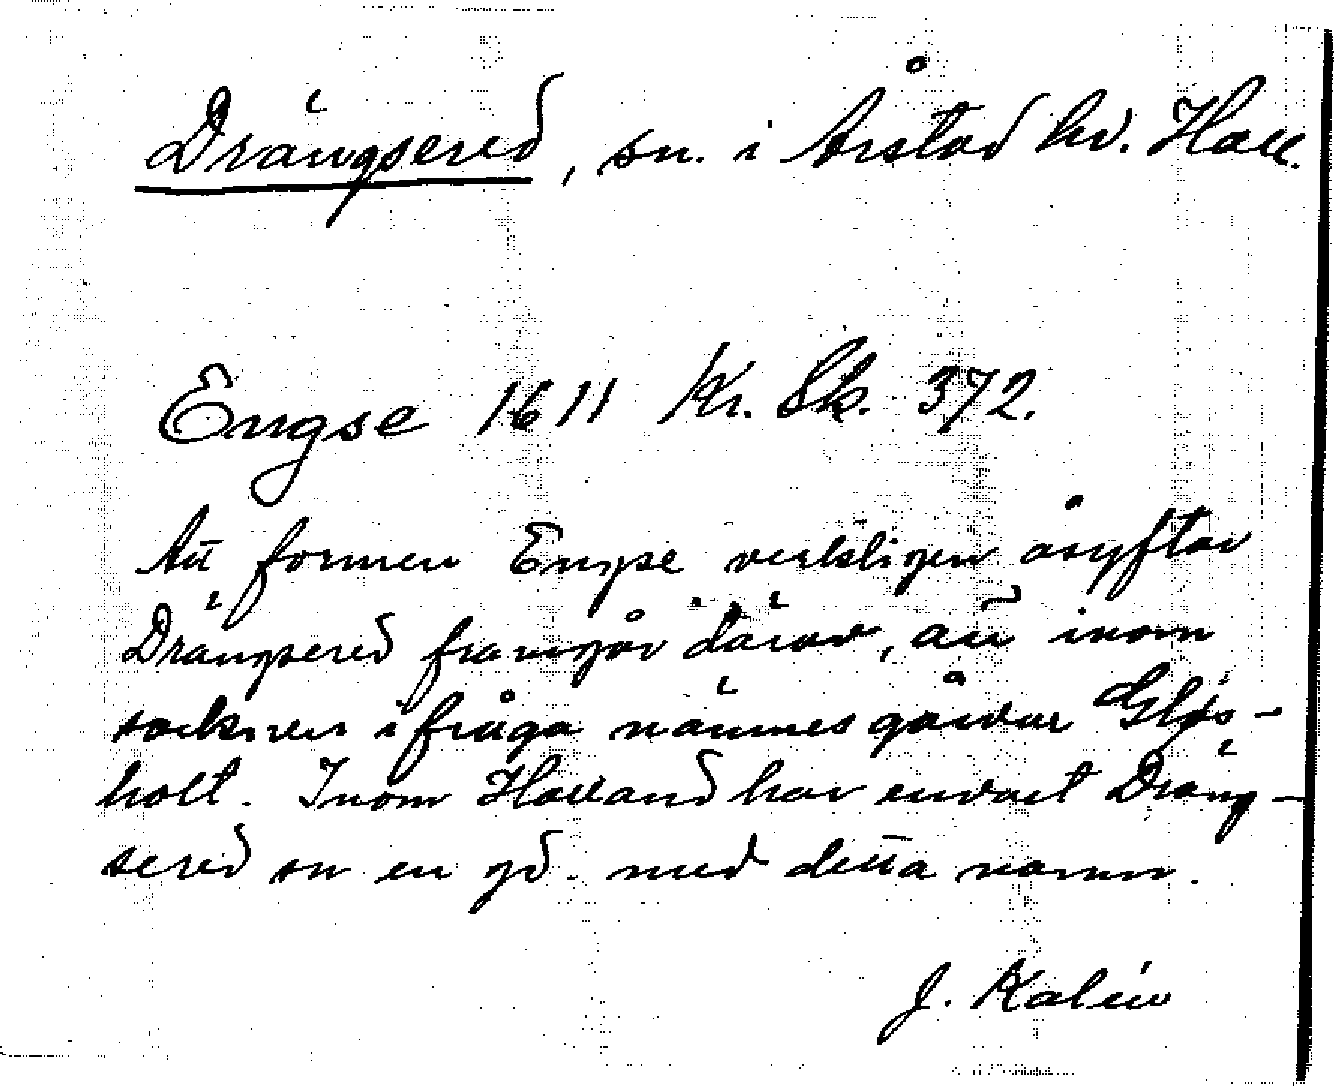 Drängsered, sn. i Årstad hd. Hall.
Engse 1611 Kr. Sk. 372.
Att formen Engse verkligen åsyftar
Drängsered framgår därav, att inom
socknen ifråga nämnes gården Gläs-
holt. Inom Halland har endast Dräng-
sered sn en gd. med detta namn.
J. Kalén